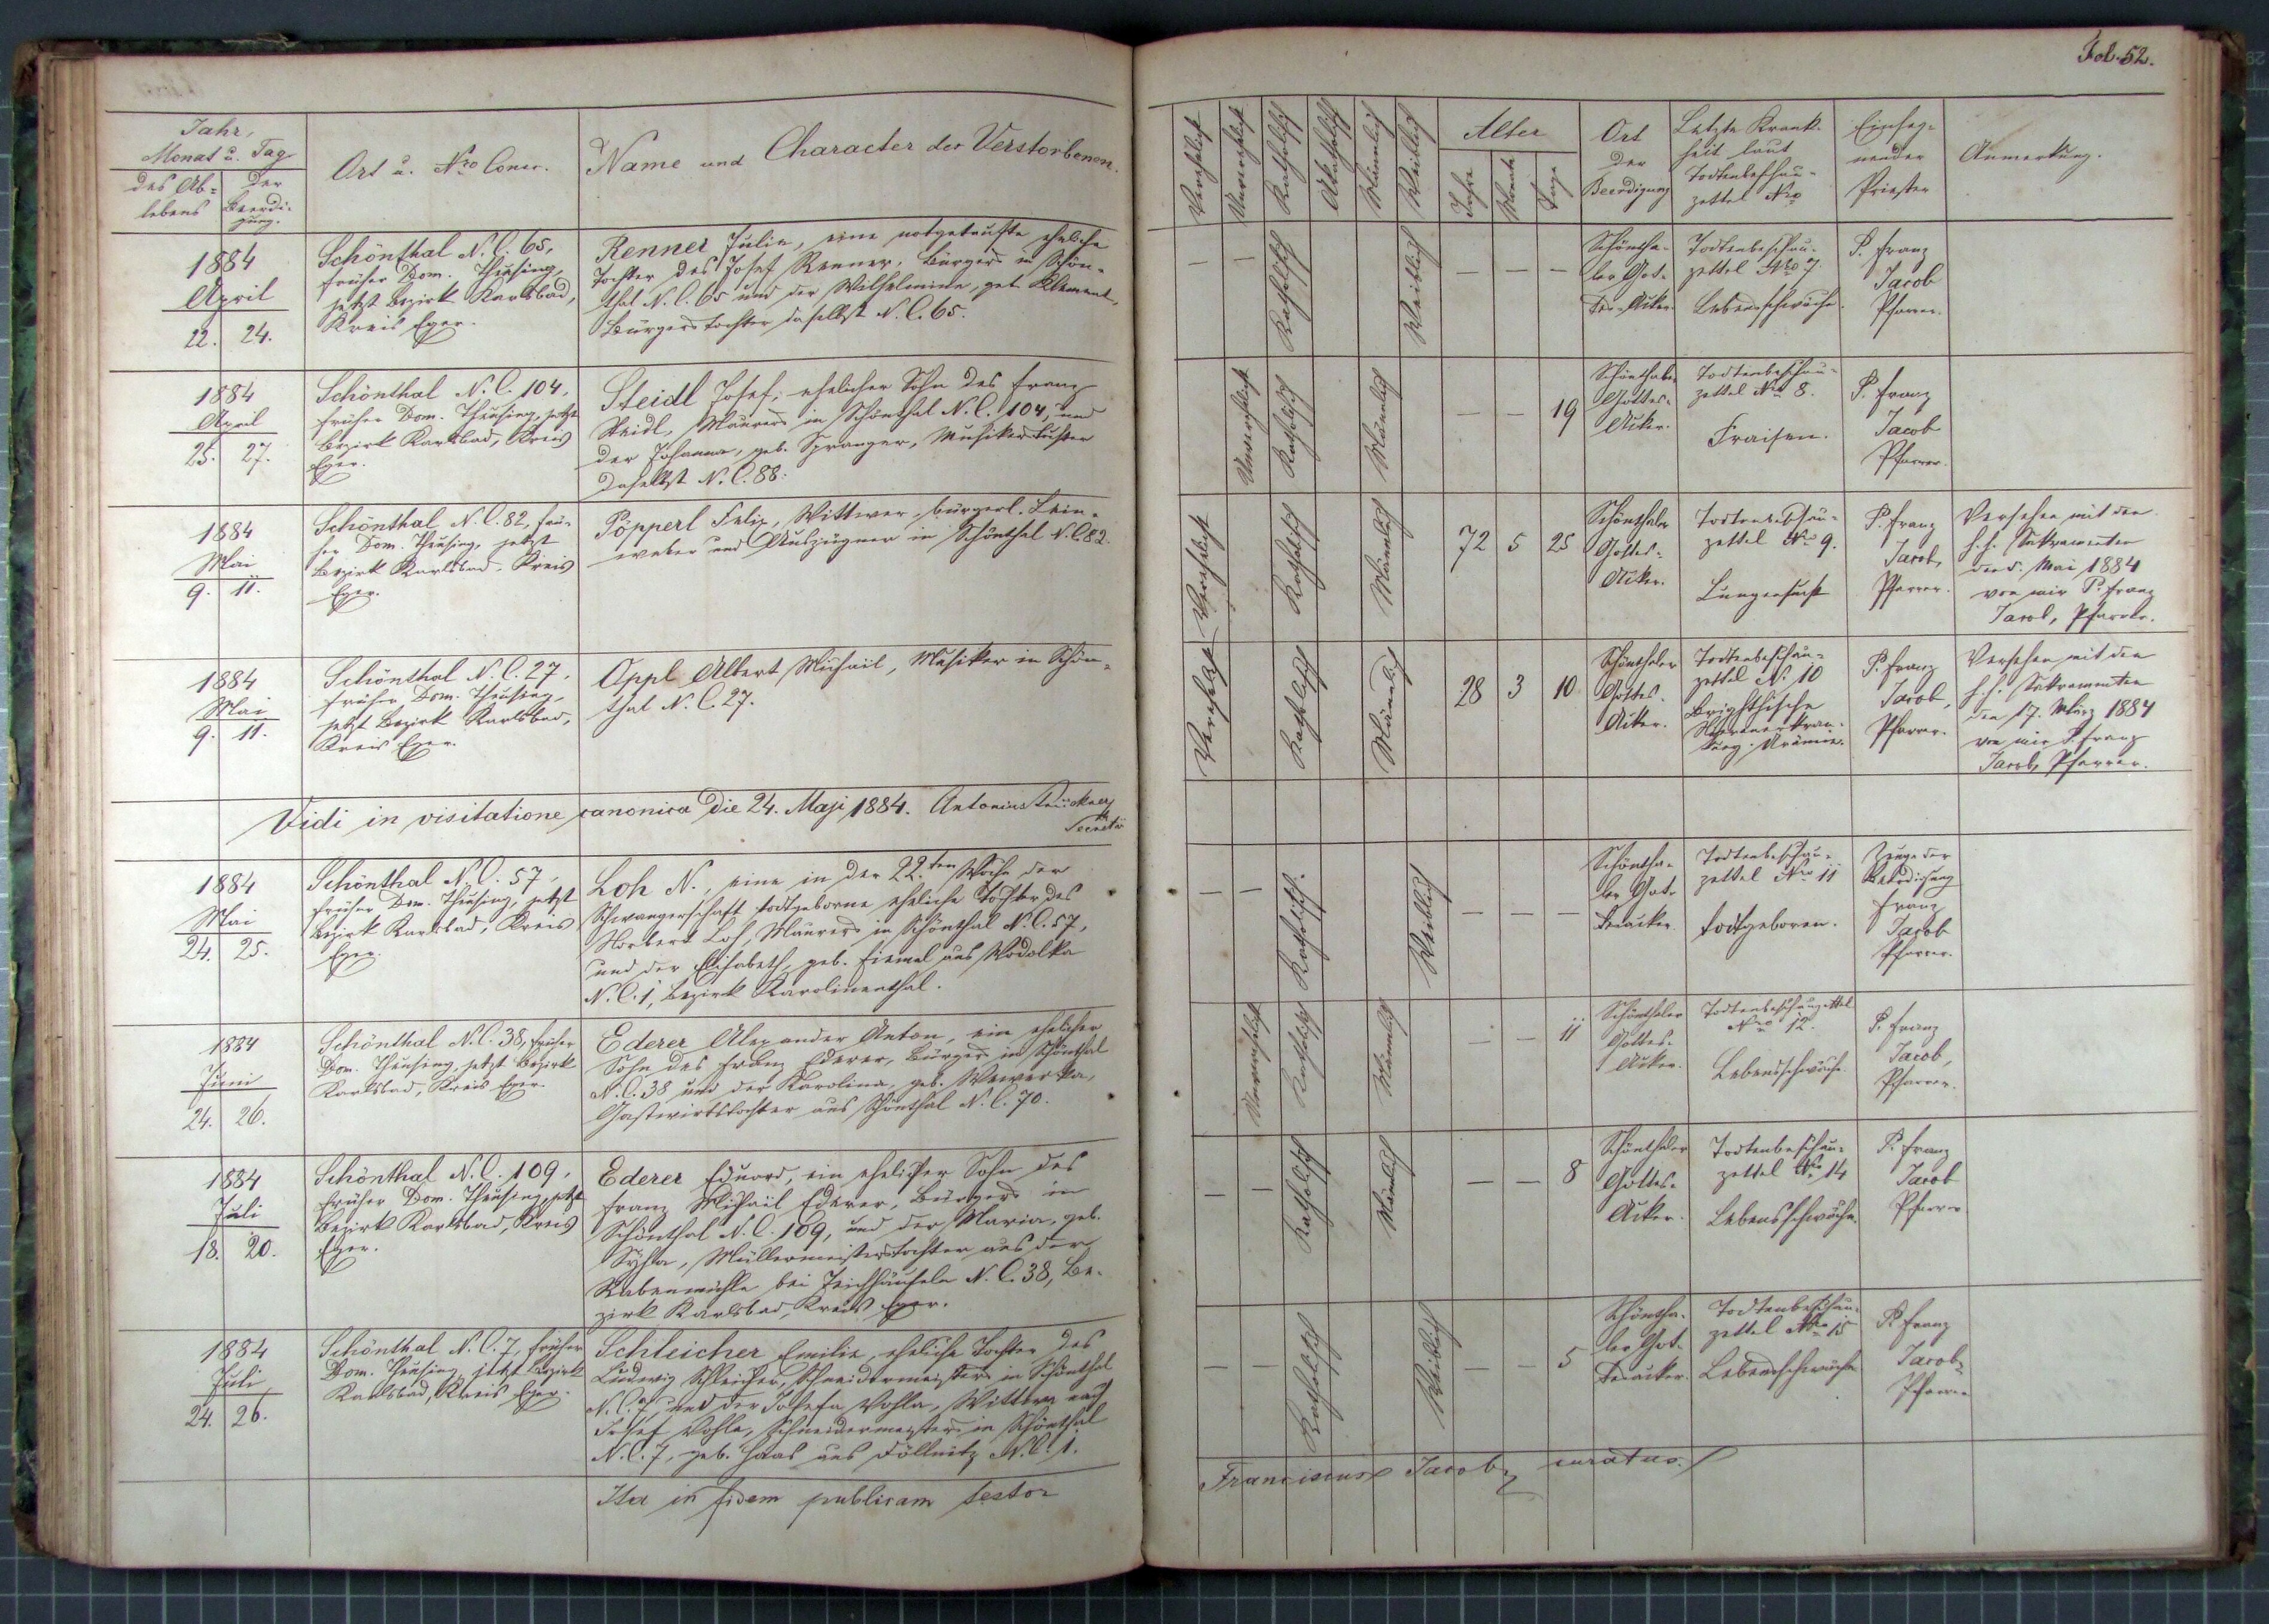 Fol. 52.
Jahr,
Monat u. Tag
des Ab=
lebens
der
Beerdi-
gung.
Ort u. Nro Conscr.
Name und Character der Verstorbenen.
Verehelicht
Unverehelicht
Katholisch
Akatholisch
Männlich
Weiblich
Alter
Jahre
Monate
Tage
Ort
der
Beerdigung
Letzte Krank-
heit laut
Todtenbeschau-
zettel Nro
Einseg-
nender
Priester
Anmerkung.
1884
April
22. 24.
Schönthal N. C. 65,
früher Dom. Theusing,
jetzt Bezirk Karlsbad,
Kreis Eger.
Renner Julie, eine notgetaufte eheliche
Tochter des Josef Renner, Bürgers in Schön-
thal N. C. 65 und der Wilhelmine, geb. Klement,
Bürgerstochter daselbst N. C. 65.
— — Katholisch Weiblich — — —
Schöntha-
ler Got-
tes-Acker.
Todtenbeschau-
zettel Nro 7.
Lebensschwäche.
P. Franz
Jacob
Pfarrer.
1884
April
25. 27.
Schönthal N. C. 104,
früher Dom. Theusing, jetzt
Bezirk Karlsbad, Kreis
Eger.
Steidl Josef, ehelicher Sohn des Franz
Steidl, Maurers in Schönthal N. C. 104, und
der Johanna, geb. Spranger, Musikerstochter
daselbst N. C. 88.
Unverehelicht Katholisch Männlich — — 19
Schönthaler
Gottes-
Acker.
Todtenbeschau-
zettel Nro 8.
Fraisen.
P. Franz
Jacob
Pfarrer.
1884
Mai
9. 11.
Schönthal N. C. 82, frü-
her Dom. Theusing, jetzt
Bezirk Karlsbad, Kreis
Eger.
Pöpperl Felix, Wittwer, bürgerl. Lein-
weber und Auszügner in Schönthal N. C. 82.
Verehelicht Katholisch Männlich 72 5 25
Schönthaler
Gottes-
Acker.
Todtenbeschau-
zettel Nro 9.
Lungensucht
P. Franz
Jacob,
Pfarrer.
Versehen mit den
h. h. Sakramenten
den 5. Mai 1884
von mir P. Franz
Jacob, Pfarrer.
1884
Mai
9. 11.
Schönthal N. C. 27,
früher Dom. Theusing,
jetzt Bezirk Karlsbad,
Kreis Eger.
Oppl Albert Michael, Musiker in Schön-
thal N. C. 27.
Verehelicht Katholisch Männlich 28 3 10
Schönthaler
Gottes-
Acker.
Todtenbeschau-
zettel No 10
Brightische
Nierenerkran-
kung. Urämie.
P. Franz
Jacob,
Pfarrer.
Versehen mit den
h. h. Sakramenten
den 17. März 1884
von mir P. Franz
Jacob, Pfarrer.
Vidi in visitatione canonica die 24. Maji 1884. Antonius Brückner
Secretär
1884
Mai
24. 25.
Schönthal N. C. 57,
früher Dom. Theusing, jetzt
Bezirk Karlsbad, Kreis
Eger.
Loh N., eine in der 22.ten Woche der
Schwangerschaft todtgeborne eheliche Tochter des
Norbert Loh, Maurers in Schönthal N. C. 57,
und der Elisabeth, geb. aus Wodolka
N. C. 1, Bezirk Karolinenthal.
— — Katholisch. Weiblich — — —
Schöntha-
ler Got-
tesacker.
Todtenbeschau-
zettel Nro 11
Todtgeboren.
Zeuge der
Beerdigung
Franz
Jacob
Pfarrer.
1884
Juni
24. 26.
Schönthal N. C. 38, früher
Dom. Theusing, jetzt Bezirk
Karlsbad, Kreis Eger.
Ederer Alexander Anton, ein ehelicher
Sohn des Franz Ederer, Bürgers in Schönthal
N. C. 38 und der Karolina, geb. Wewerka,
Gastwirtstochter aus Schönthal N. C. 70.
Unverehelicht Katholisch Männlich — — 11
Schönthaler
Gottes-
Acker.
Todtenbeschauzettel
Nro 12.
Lebensschwäche.
P. Franz
Jacob,
Pfarrer.
1884
Juli
18. 20.
Schönthal N. C. 109,
früher Dom. Theusing, jetzt
Bezirk Karlsbad, Kreis
Eger.
Ederer Eduard, ein ehelicher Sohn des
Franz Michael Ederer, Bürgers in
Schönthal N. C. 109, und der Maria, geb.
Müllermeisterstochter aus der
Rabenmühle bei Teichhäuseln N. C. 38, Be-
zirk Karlsbad, Kreis Eger.
— — Katholisch Männlich — — 8
Schönthaler
Gottes-
Acker.
Todtenbeschau-
zettel Nro 14
Lebensschwäche.
P. Franz
Jacob
Pfarrer
1884
Juli
24. 26.
Schönthal N. C. 7, früher
Dom. Theusing, jetzt Bezirk
Karlsbad, Kreis Eger.
Schleicher Emilie, eheliche Tochter des
Ludwig Schleicher, Schneidermeisters in Schönthal
N. C. 7, und der Josefa Wohla, Wittwe nach
Josef Wohla, Schneidermeisters in Schönthal
N. C. 7, geb. Haas aus Döllnitz N. C. 1.
— — Katholisch Weiblich — — 5
Schöntha-
ler Got-
tesacker.
Todtenbeschau-
zettel Nro 15
Lebensschwäche
P. Franz
Jacob
Pfarrer
Ita in fidem publicam testor
Franciscus Jacob, curatus.